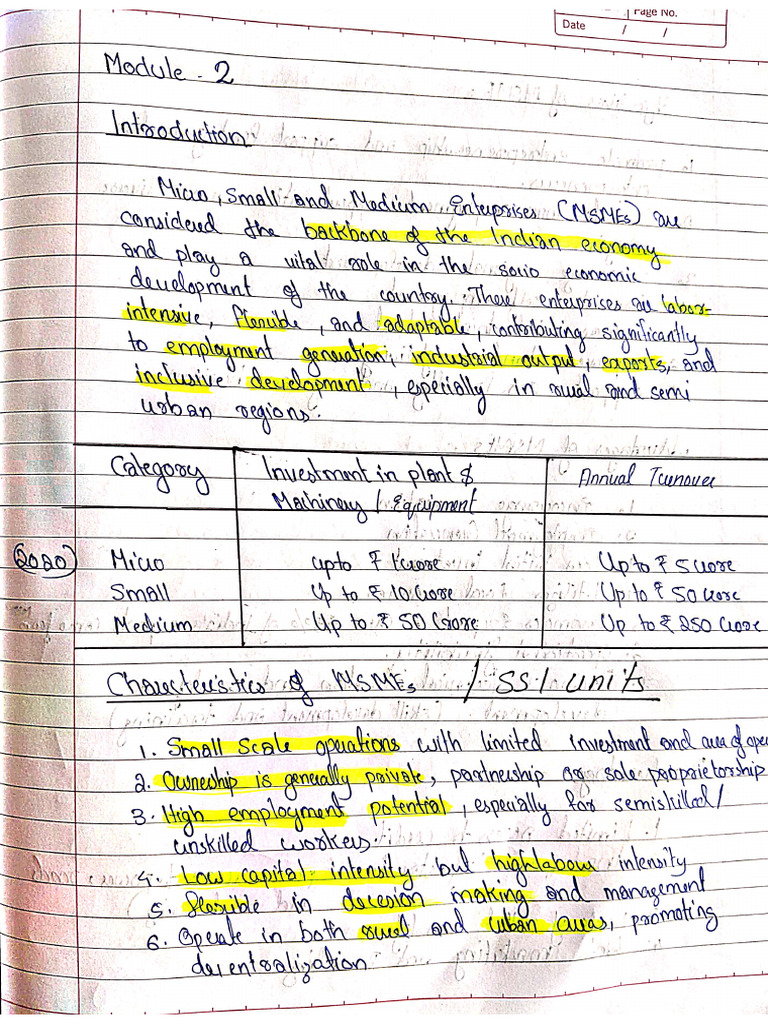 Page No.
Date / /
Module - 2
Introduction
Micro, Small and Medium Enterprises (MSMEs) are
considered the backbone of the Indian economy
and play a vital role in the socio economic
development of the country. These enterprises are labor-
intensive, flexible, and adaptable, contributing significantly
to employment generation, industrial output, exports, and
inclusive development, especially in rural and semi
urban regions.
Category Investment in plant & Annual Turnover
Machinery / Equipment
2020 Micro upto ₹ 1 crore Up to ₹ 5 crore
Small Up to ₹ 10 Crore Up to ₹ 50 crore
Medium Up to ₹ 50 Crore Up to ₹ 250 Crore
Characteristics of MSMEs / SSI units
1. Small scale operations with limited investment and area of ope
2. Ownership is generally private, partnership or sole proprietorship
3. High employment potential, especially for semiskilled /
unskilled workers.
4. Low capital intensity but high labour intensity
5. flexible in decesion making and management
6. Operate in both rural and urban areas, promoting
decentralization